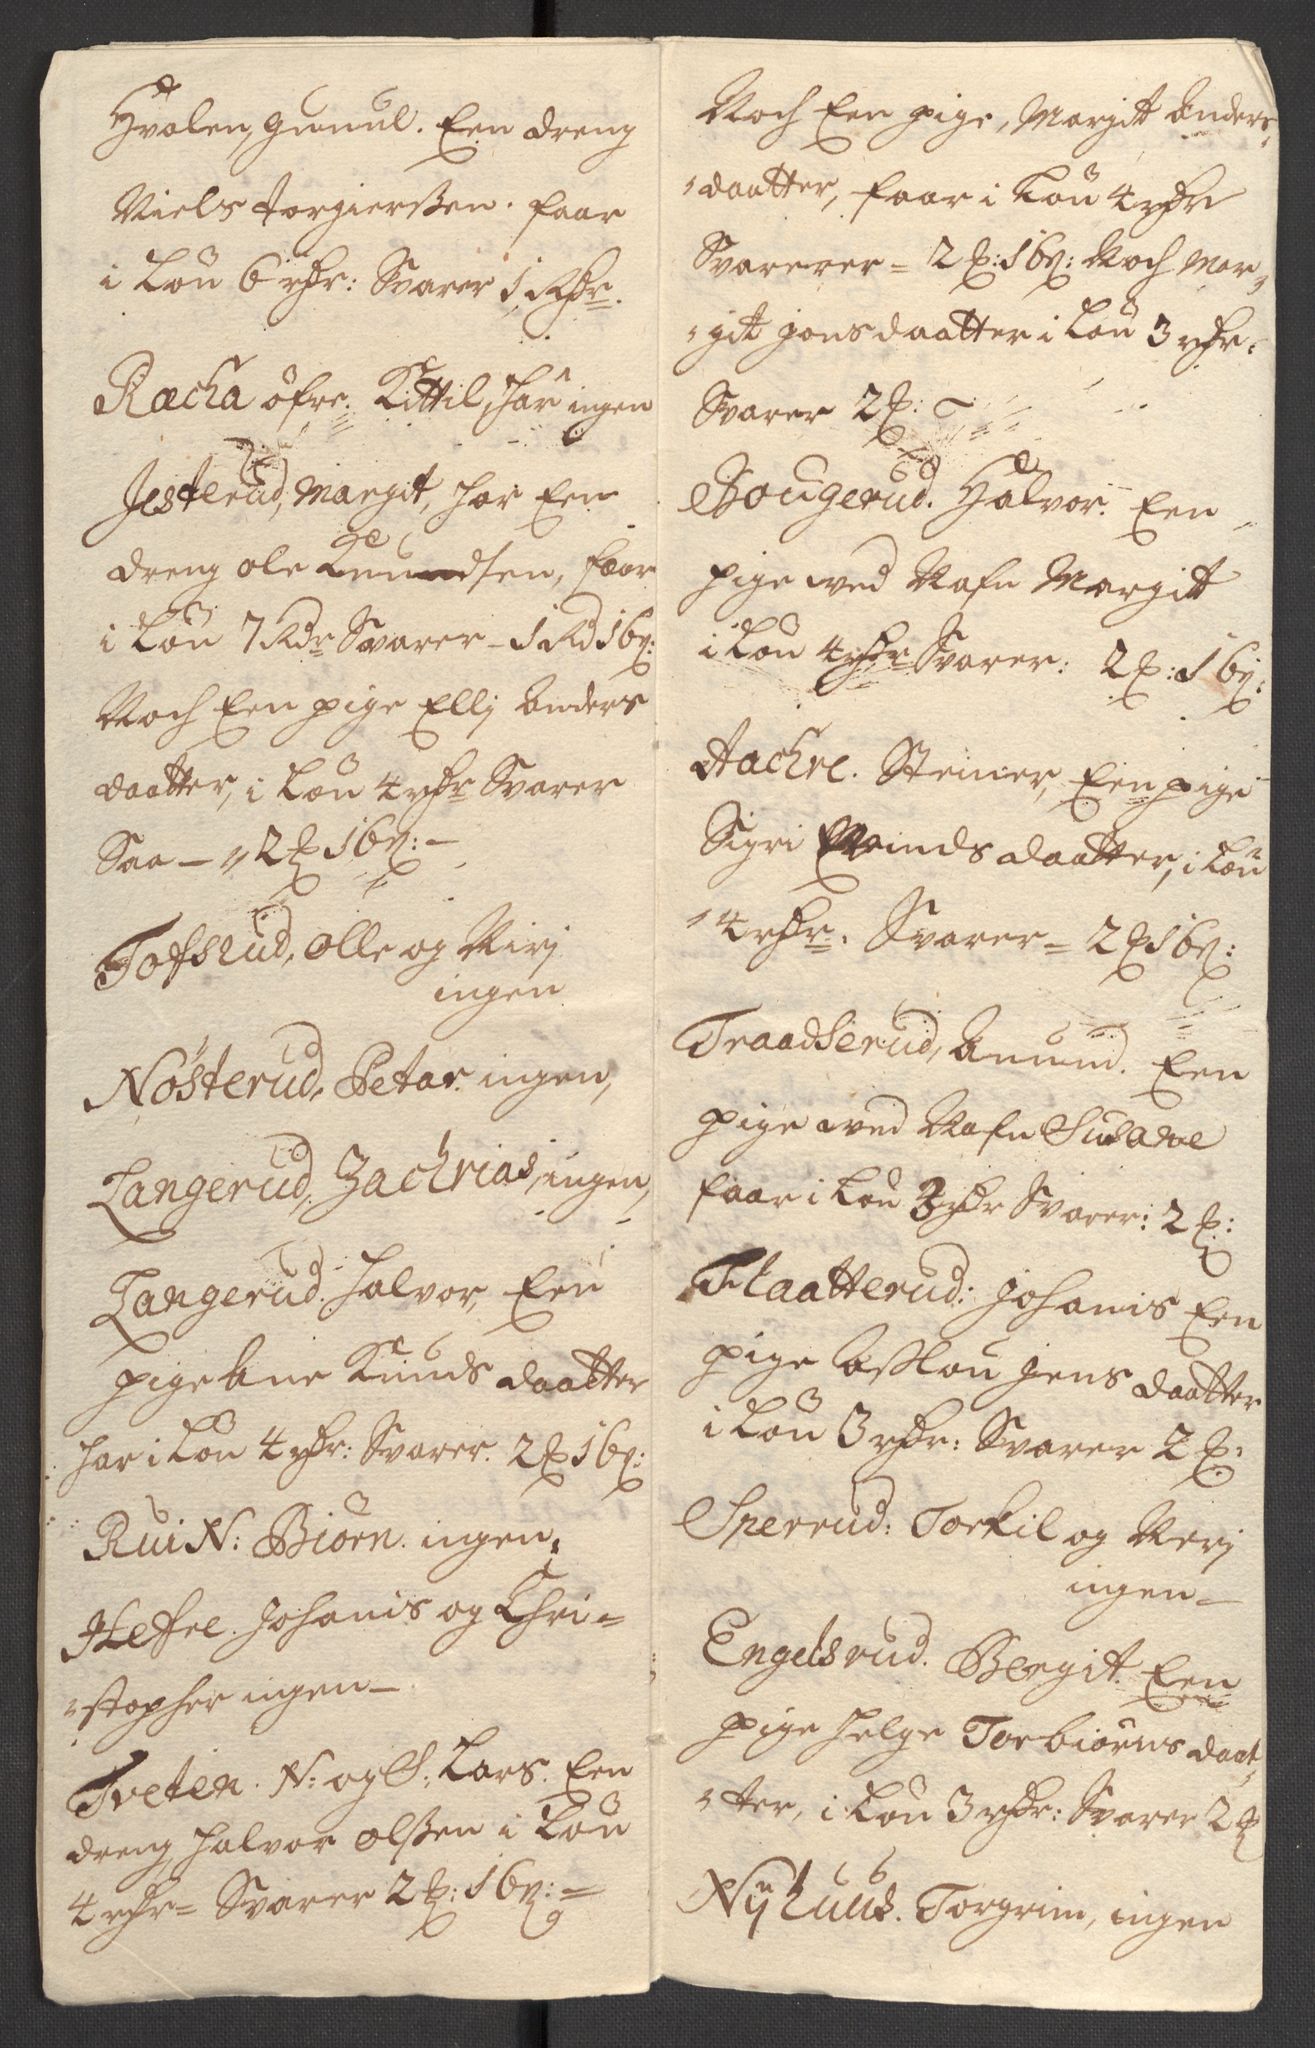 Hvalen, gunul. Een dreng
Niels torgierßen. faar
i Løn 6 rdr: Svarer 1 Rdr.
Racha öfre. Kittil, har ingen
Jesterud, Margit, har Een
dreng ole Knudsen, faar
i Løn 7 Rdr Svarer - 1 Rd 16 β:
Noch Een pige Ellj Anders
daatter, i Løn 4 rdr Svarer
Saa - 2 ₰ 16 β: -
Tofsrud, olle og Nirj
ingen
Nösterud, Petar ingen,
Langerud, Zachrias, ingen,
Langerud. halvor, Een
pige Ane Knuds daatter
har i Løn 4 rdr: Svarer. 2 ₰ 16 β:
Rui N: Biörn. ingen:
Hefre. Johanis og Chri=
stopher ingen -
Tveten. N: og S: Lars. Een
dreng halvor olßen i Løn
4 rdr = Svarer 2 ₰: 16 β: =
Noch Een pige, Margit Anders,
daatter, faar i Løn 4 rdr
Svarerer = 2 ₰: 16 β: Noch Mar,
git jonsdaatter i Løn 3 rdr.
Svarer 2 ₰: ~
Bougerud. Halvor. Een
pige wed Nafn Margit
i Løn 4 rdr Svarer: 2 ₰: 16 β:
Aachre. Steiner, Een pige
Sigri daatter, i Løn
4 rdr. Svarer = 2 ₰ 16 β:
Traadserud, Anund. Een
pige wed Nafn Susane
faar i Løn 3 rdr Svarer: 2 ₰:
Flaatterud: Johanis Een
pige Aßlou Jens daatter
i Løn 3 rdr: Svarer 2 ₰:
Sperrud: Torkil og Nerj
ingen -
Engelsrud. Bergit. Een
pige helge Torbiörns daat,
ter, i Løn 3 rdr: Svarer 2 ₰
Nÿhuus. Torgrim, ingen